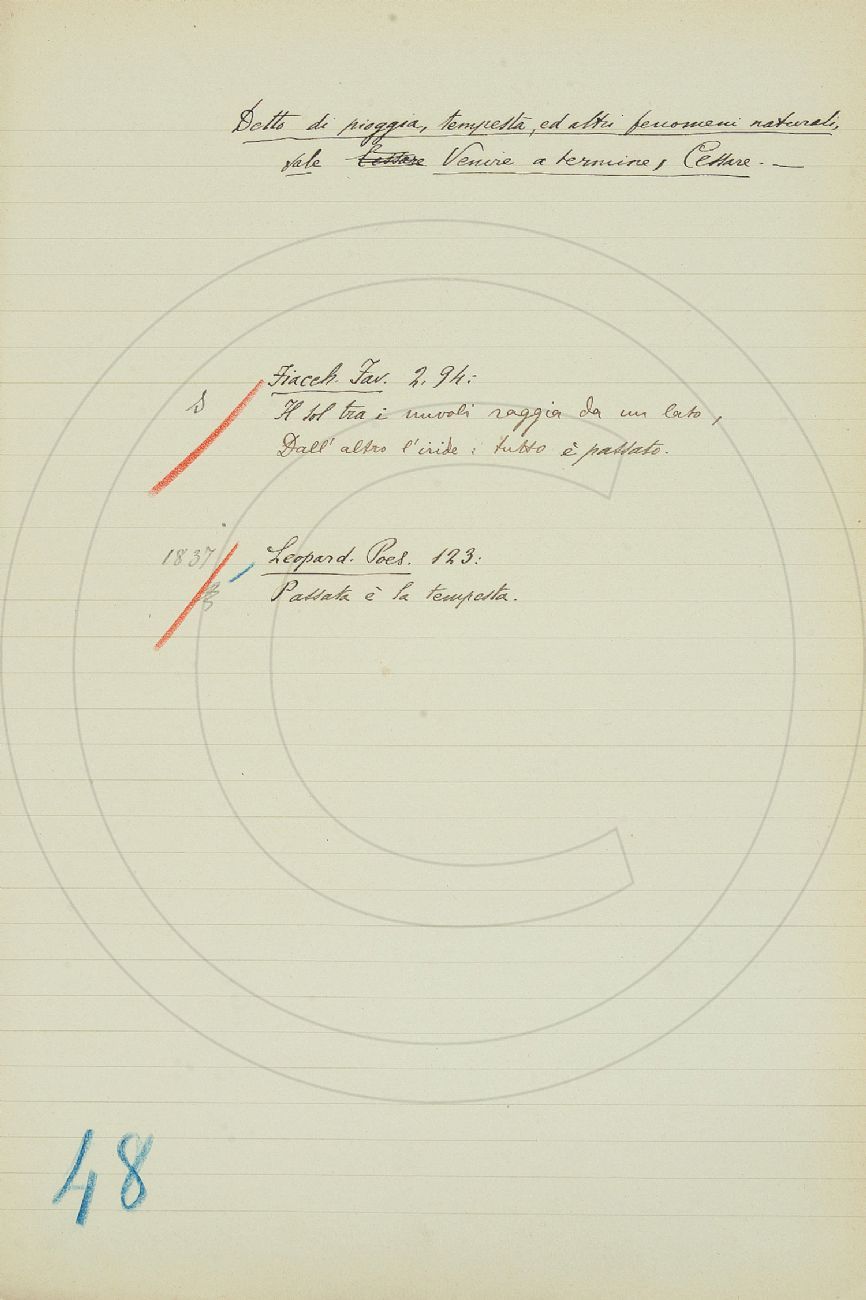 Detto di pioggia, tempesta, ed altri fenomeni naturali,
vale Cessare Venire a termine, Cessare. —
Fiacch. Fav. 2. 94:
S
Il sol tra i nuvoli raggia da un lato,
Dall' altro l'iride: tutto è passato.
1837 Leopard. Poes. 123:
Passata è la tempesta.
48